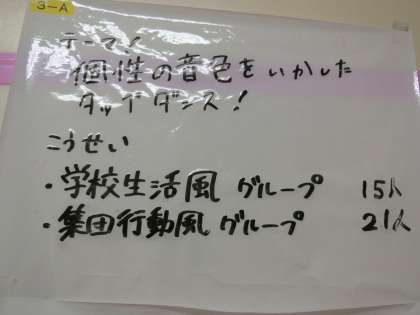 3-A
テーマ！
個性の音色をいかした
タップダンス！
こうせい
・学校生活風 グループ 15人
・集団行動風 グループ 21人